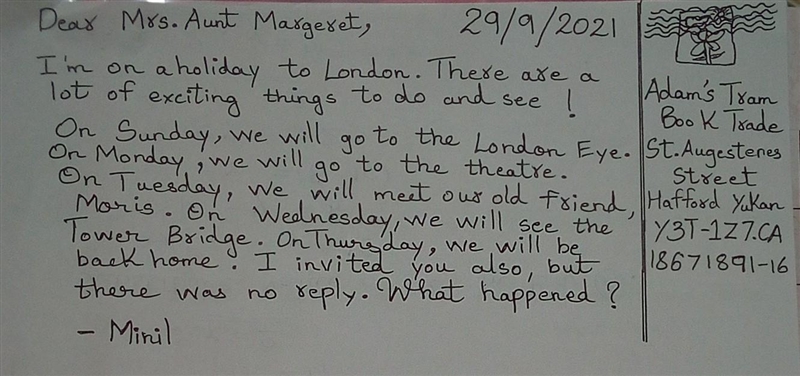 Dear Mrs. Aunt Margeret,
29/9/2021
I'm on a holiday to London. There are a
lot of exciting things to do and see !
On Sunday, we will go to the London Eye.
On Monday, we will go to the theatre.
On Tuesday, we will meet our old friend,
Moris. On Wednesday, we will see the
Tower Bridge. On Thursday, we will be
back home. I invited you also, but
there was no reply. What happened ?
- Minil
Adam's Tram
Book Trade
St. Augestenes
Street
Hafford Yukan
Y3T-1Z7.CA
18671891-16